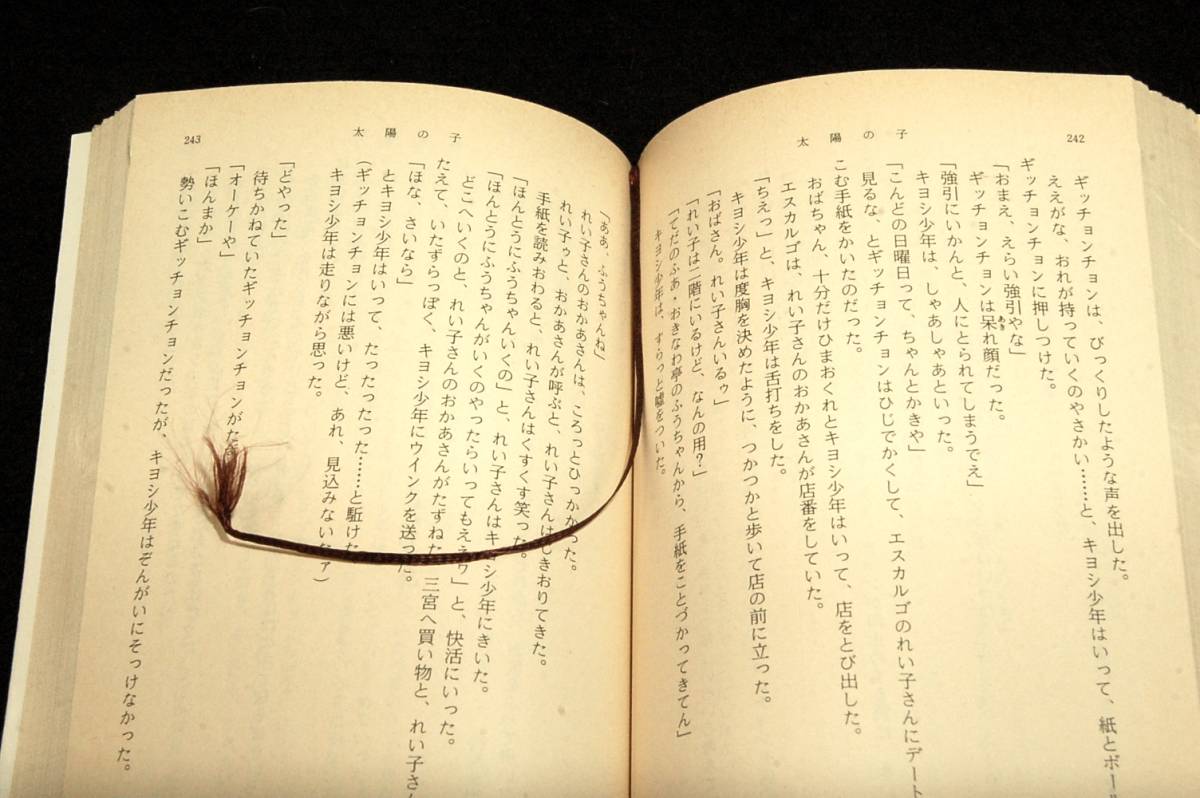 242
太陽の子
ギッチョンチョンは、びっくりしたような声を出した。
ええがな、おれが持っていくのやさかい……と、キヨシ少年はいって、紙とボー
ギッチョンチョンに押しつけた。
「おまえ、えらい強引やな」
ギッチョンチョンは呆れ顔だった。
「強引にいかんと、人にとられてしまうでえ」
キヨシ少年は、しゃあしゃあといった。
「こんどの日曜日って、ちゃんとかきや」
見るな、とギッチョンチョンはひじでかくして、エスカルゴのれい子さんにデート
こむ手紙をかいたのだった。
おばちゃん、十分だけひまおくれとキヨシ少年はいって、店をとび出した。
エスカルゴは、れい子さんのおかあさんが店番をしていた。
「ちえっ」と、キヨシ少年は舌打ちをした。
キヨシ少年は度胸を決めたように、つかつかと歩いて店の前に立った。
「おばさん。れい子さんいるゥ」
「れい子は二階にいるけど、なんの用?」
「てだのふあ・おきなわ亭のふうちゃんから、手紙をことづかってきてん」
キヨシ少年は、すらっと嘘をついた。
243
太陽の子
「ああ、ふうちゃんね」
れい子さんのおかあさんは、ころっとひっかかった。
れい子ゥと、おかあさんが呼ぶと、れい子さんはじきおりてきた。
手紙を読みおわると、れい子さんはくすくす笑った。
「ほんとうにふうちゃんいくの」と、れい子さんはキヨシ少年にきいた。
「ほんとうにふうちゃんがいくのやったらいってもええゥ」と、快活にいった。
どこへいくのと、れい子さんのおかあさんがたずねた 三宮へ買い物と、れい子さん
たえて、いたずらっぽく、キヨシ少年にウインクを送った。
「ほな、さいなら」
とキヨシ少年はいって、たったったった……と駈けた
(ギッチョンチョンには悪いけど、あれ、見込みないなァ)
キヨシ少年は走りながら思った。
「どやった」
待ちかねていたギッチョンチョンがた
「オーケーや」
「ほんまか」
勢いこむギッチョンチョンだったが、キヨシ少年はぞんがいにそっけなかった。